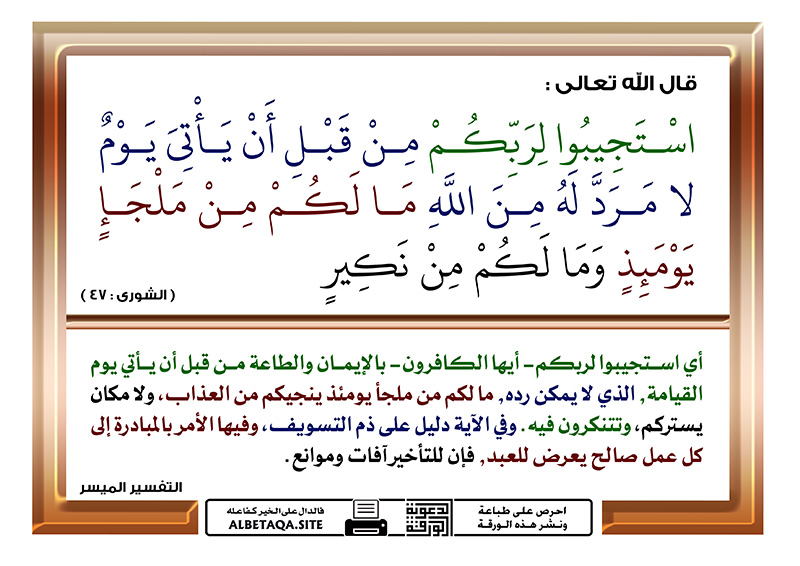 قال الله تعالى :
اسْتَجِيبُوا لِرَبِّكُمْ مِنْ قَبْلِ أَنْ يَأْتِيَ يَوْمٌ
لا مَرَدَّ لَهُ مِنَ اللَّهِ مَا لَكُمْ مِنْ مَلْجَإٍ
يَوْمَئِذٍ وَمَا لَكُمْ مِنْ نَكِيرٍ
( الشورى : ٤٧ )
أي استجيبوا لربكم- أيها الكافرون- بالإيمان والطاعة من قبل أن يأتي يوم
القيامة, الذي لا يمكن رده, ما لكم من ملجأ يومئذ ينجيكم من العذاب، ولا مكان
يستركم، وتتنكرون فيه. وفي الآية دليل على ذم التسويف، وفيها الأمر بالمبادرة إلى
كل عمل صالح يعرض للعبد, فإن للتأخير آفات وموانع.
التفسير الميسر
احرص على طباعة
ونشر هذه الورقة
الدعوية
الورقة
فالدال على الخير كفاعله
ALBETAQA.SITE